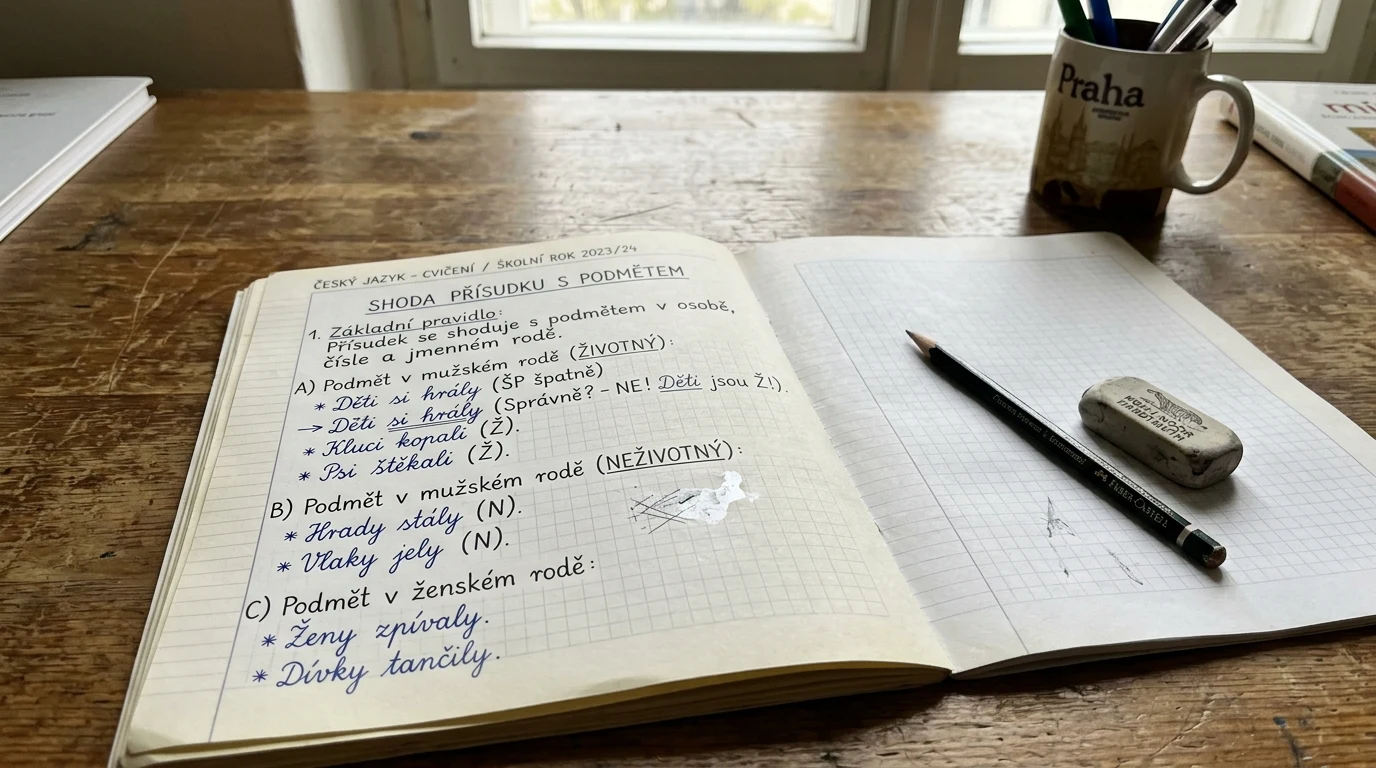 ČESKÝ JAZYK - CVIČENÍ / ŠKOLNÍ ROK 2023/24
SHODA PŘÍSUDKU S PODMĚTEM
1. Základní pravidlo:
Přísudek se shoduje s podmětem v osobě,
čísle a jmenném rodě.
A) Podmět v mužském rodě (ŽIVOTNÝ):
* Děti si hrály (ŠP špatně)
→ Děti si hrály (Správně? - NE! Děti jsou Ž!).
* Kluci kopali (Ž).
* Psi štěkali (Ž).
B) Podmět v mužském rodě (NEŽIVOTNÝ):
* Hrady stály (N).
* Vlaky jely (N).
C) Podmět v ženském rodě:
* Ženy zpívaly.
* Dívky tančily.
Praha